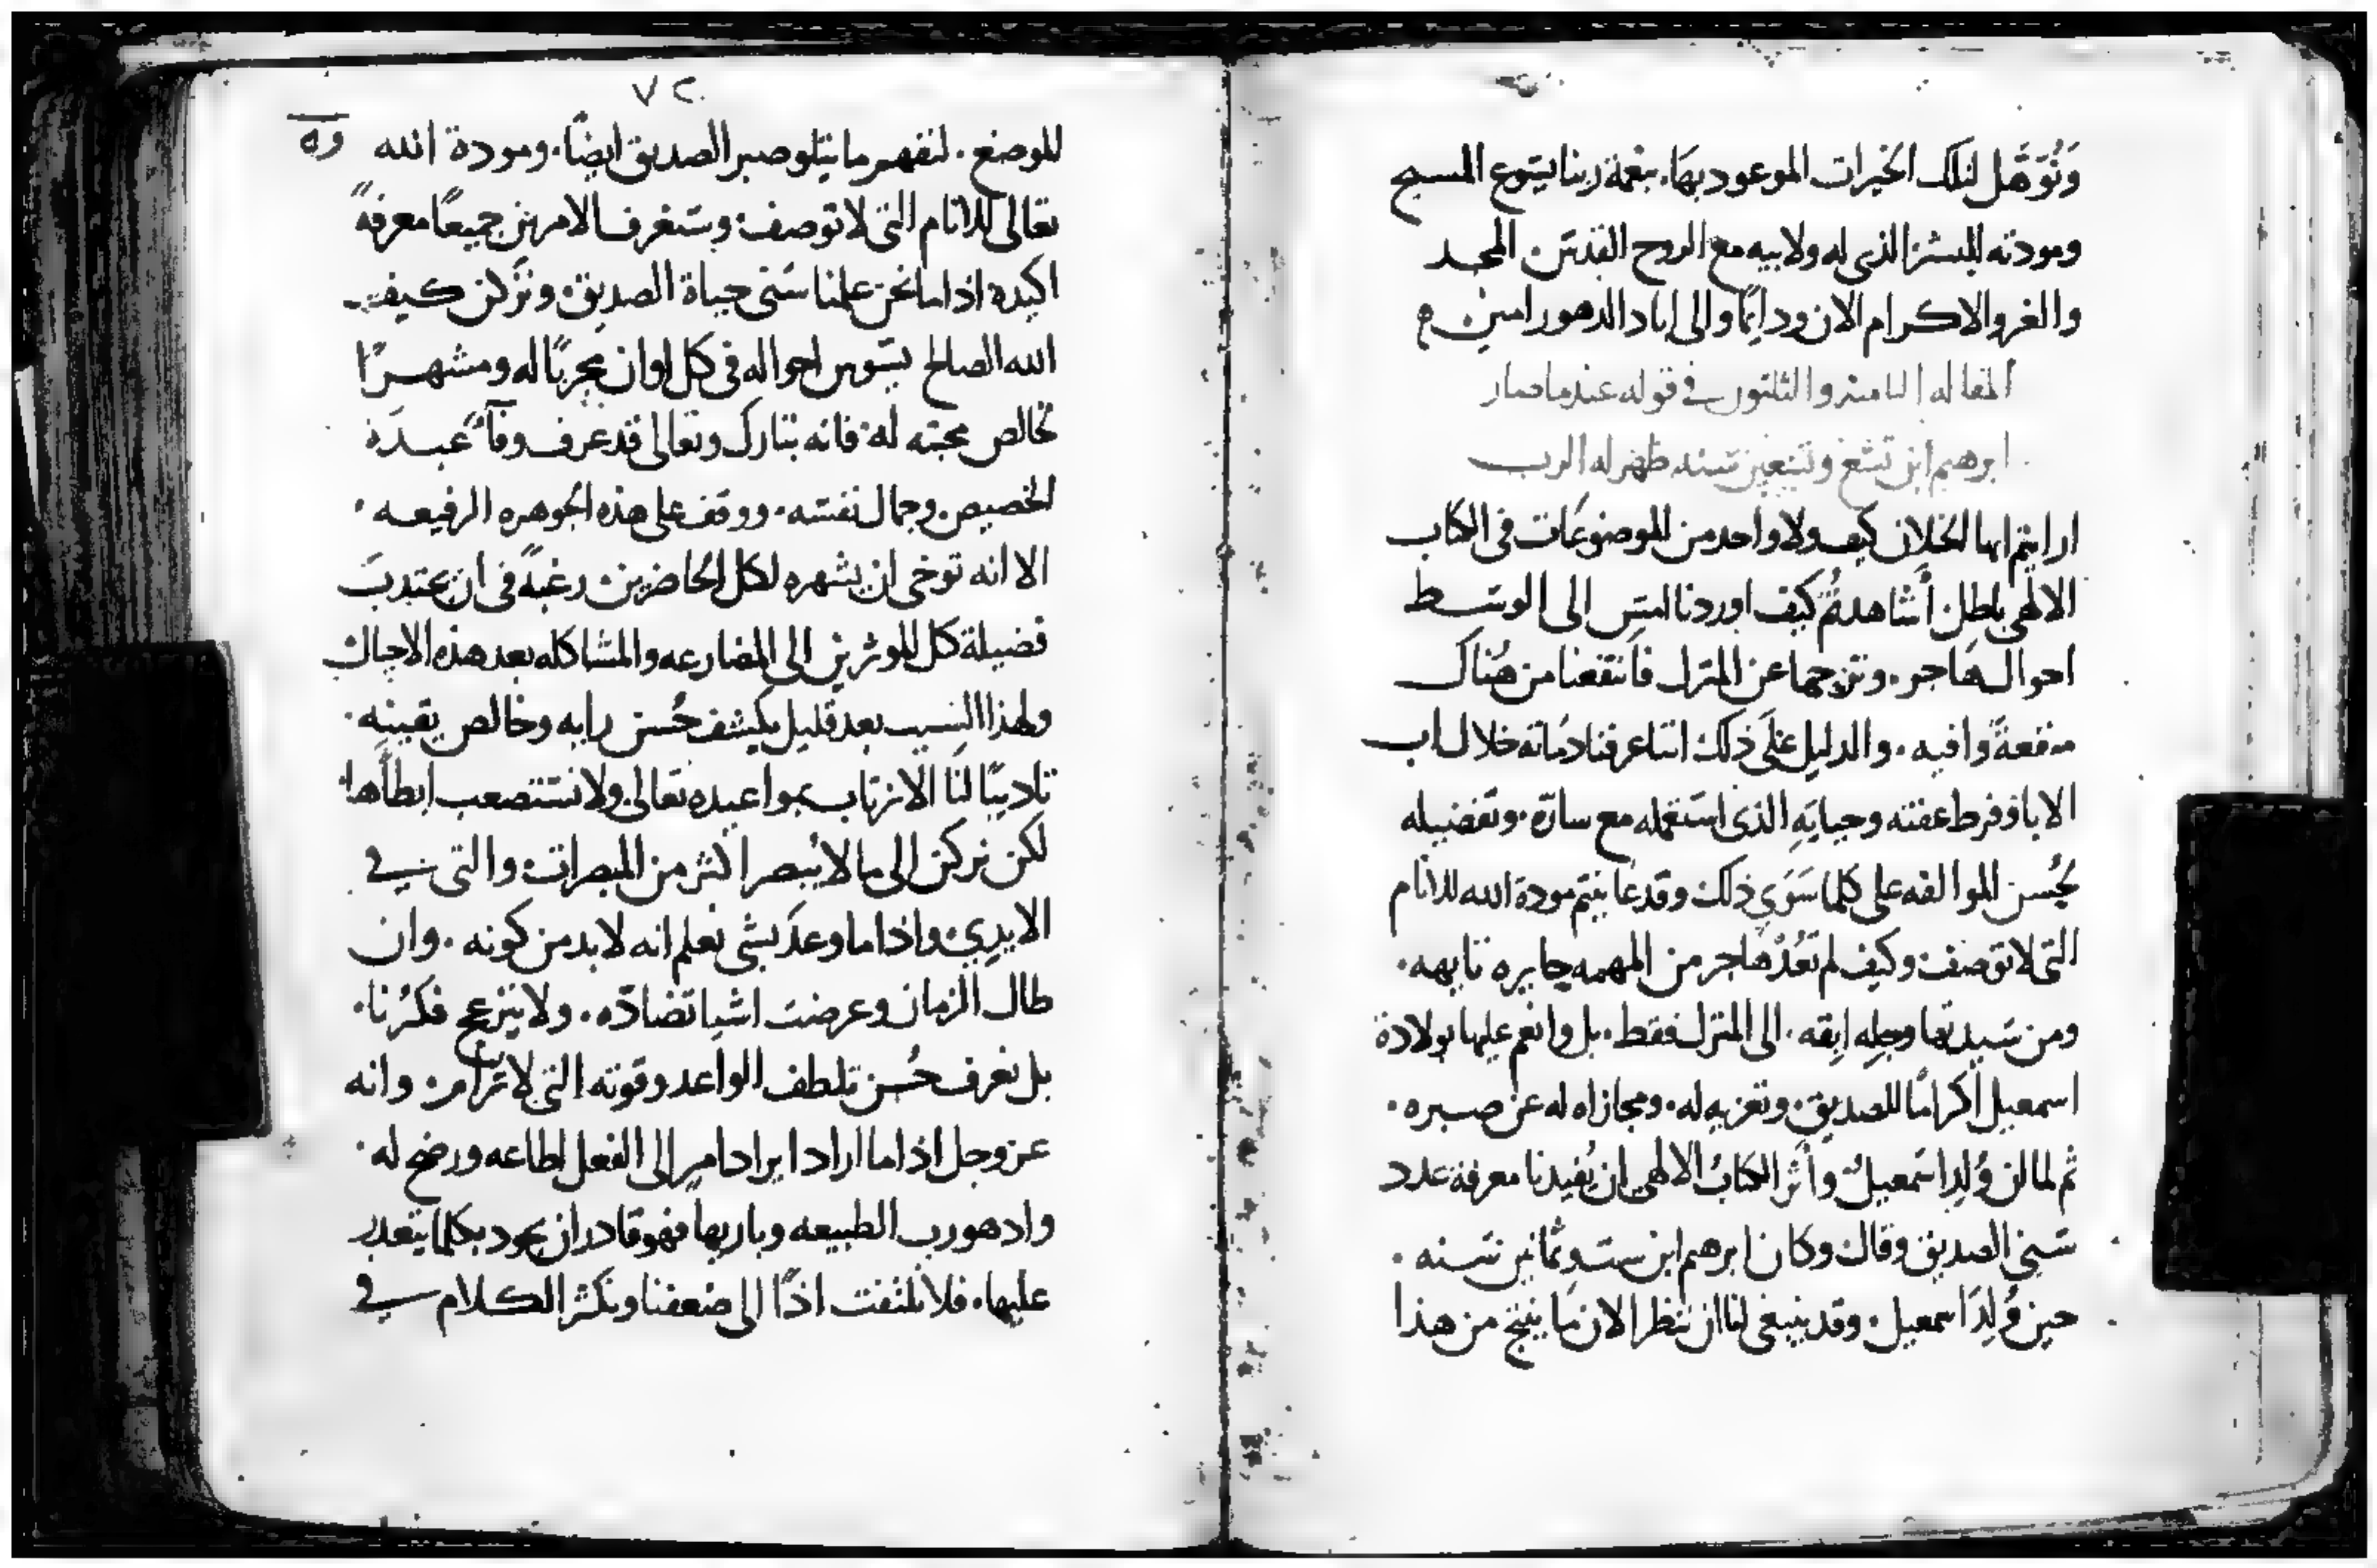 وَنُوَهَّل لتلك الخيرات الموعود بهَا. بنعمة ربنا يسوع المسيح
ومودته للبشر الذى له ولابيه مع الروح القدس المجد
والعز والاكرام الان ودايمًا والى اباد الدهور امين
المقاله الثامنه والثلثون فى قوله عندما صار
ابرهيم ابن تسع وتسعين سنه ظهر له الرب
ارايتم ايها الخلان كيف ولا واحد من الموضوعَات فى الكتاب
الالهى باطل أشاهدتُم كيف اوردنا امس الى الوسط
احوال هَاجر. وتزوجها عن المنزل فانتفعنا من هُناك
منفعةً وافيه. والدليل علَى ذلك اننا عرفنا دمَاثه خلال اب
الابا وفرط عفته وحيايَهِ الذى استعمله مع سارّه. وتفضيله
لحُسن الموالفه على كلما سَوَي ذلك وقد عاينتم مودة الله للانام
التى لا توصف وكيف لم تَعُدْ هاجر من المهمه جايره تايهه.
ومن سَيدتها وجله ابقه. الى المنزل فقط. بل وانعم عليها بولادة
اسمعيل اكرامًا للصديق. وتعزيه له. ومجازاه له عن صبره.
ثم لما ان وُلدِ اسَمعيلُ وأثر الكتابُ الالهى ان يُفيدنا معرفة عدد
سَنى الصديق وقال وكان ابرهيم ابن ست وثمانين سَنه.
حين وُلِدَ اسمعيل. وقد ينبغى لنا ان ننظر الان مَا ينتج من هذا
٧٢
وه
للوضع. لنفهم ما يتلو صبر الصديق ايضًا. ومودة الله
تعالى للانام التى لا توصف وسَنعرف الامرين جميعًا معرفةً
اكيده اذا ما نحن علمنا سَنى حياة الصديق ونزكن كيف
الله الصالح يسَوس احواله فى كل اوان مجربًا له ومشهرًا
لخالص محبته له. فانه تبارك وتعالى قد عرف وفآ عبدَهُ
الخصيص وجمال نفسَه. ووقف على هذه الجوهره الرفيعه.
الا انه توخى ان يشهره لكل الحاضرين رغبةً فى ان يجتدبَ
فضيلة كل الموثرين الى المضارعه والمشاكله بعد هذه الاجيال
ولهذا السبب بعد قليل يكشف حُسن رايه وخالص يقينه.
تاديبًا لنَا الا نرتاب بمواعيده تعالى ولا نستصعب ابطأَها
لكن نركن الى ما لا يُبصر اكثر من المبصرات والتى فى
الايدي واذا ما وعدَ بشى نعلم انه لا بد من كونه. وان
طال الزمان وعرضت اشيا تضادّه. ولا ينزعج فكرُنا.
بل نعرف حُسن تلطف الواعد وقوته التى لا تُرام وانه
عز وجل اذا ما اراد ايراد امرٍ الى الفعل اطاعه ورضح له.
واد هو رب الطبيعه وباريها فهو قادر ان يجود بكلما يتعدر
عليها. فلا نلتفت اذًا الى ضعفنا ونكثر الكلام فى